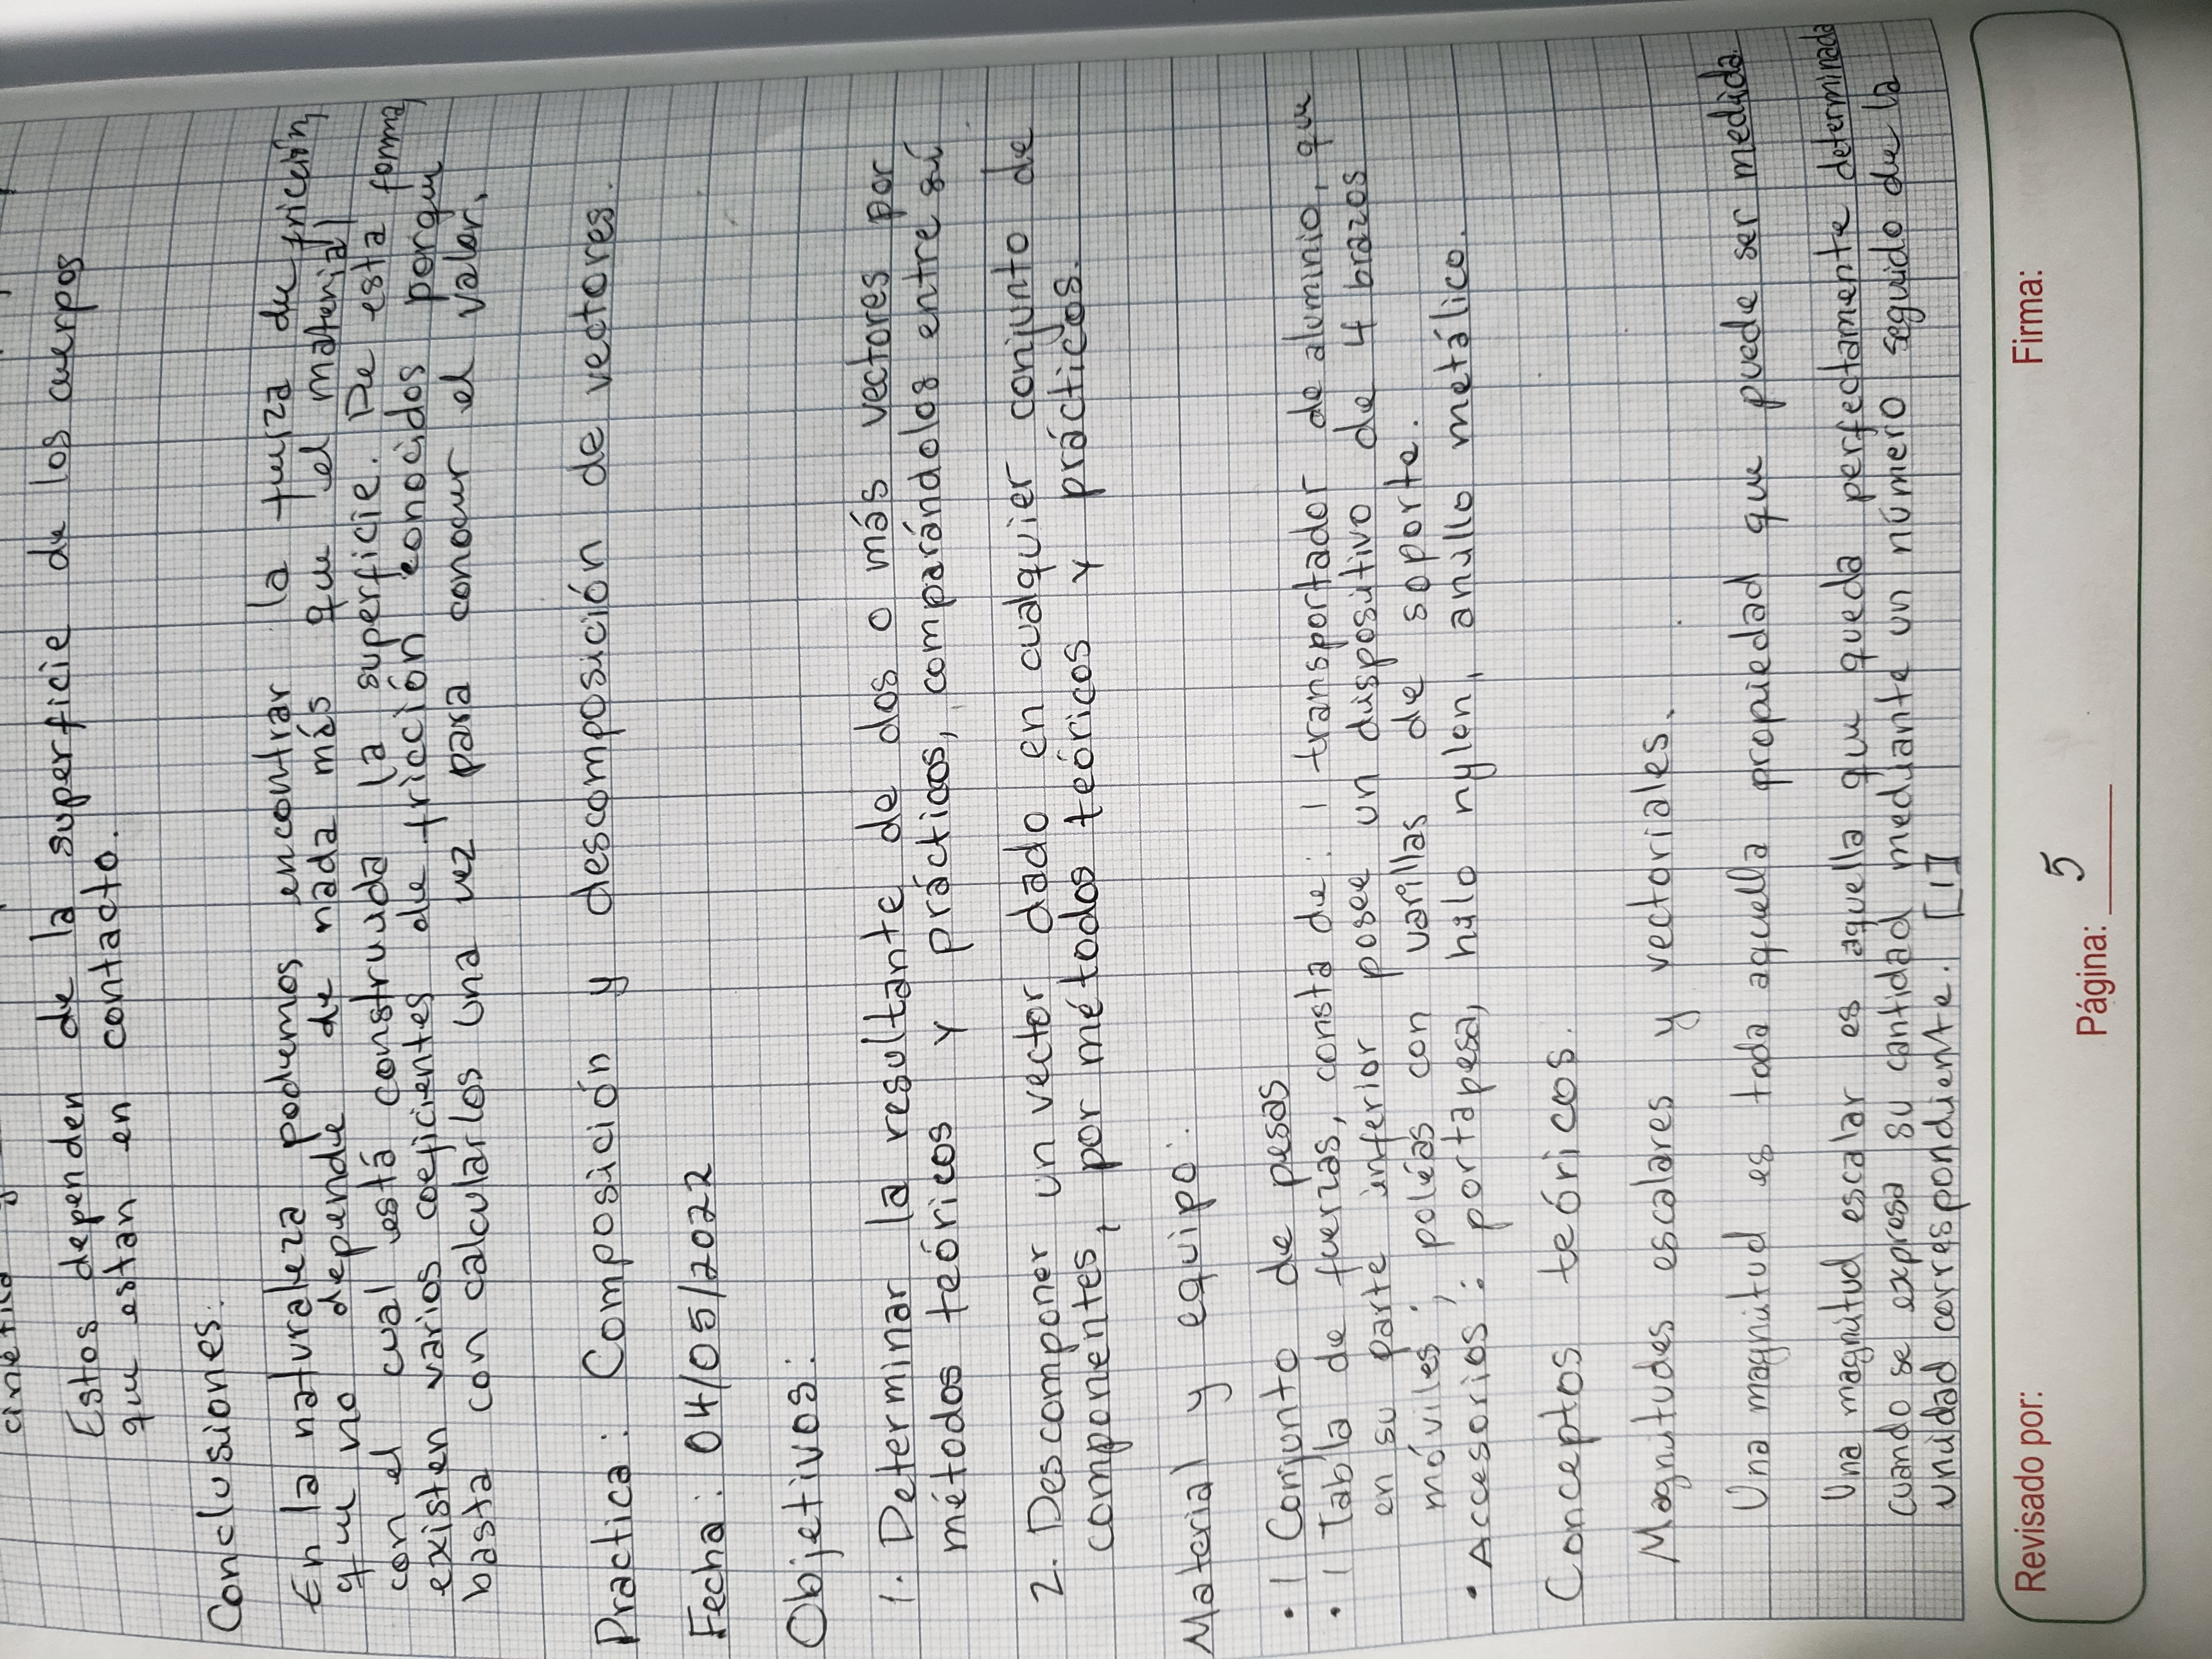 cinética y
Estos dependen de la superficie de los cuerpos
que estan en contacto.
Conclusiones:
En la naturaleza podemos encontrar la fuerza de fricción,
que no depende de nada más que el material
con el cual está construuda la superficie. De esta forma,
existen varios coeficientes de fricción conocidos porque
basta con calcularlos una vez para conocer el valor.
Practica: Composición y descomposición de vectores.
Fecha: 04/05/2022
Objetivos:
1. Determinar la resultante de dos o más vectores por
métodos teóricos y prácticos, comparándolos entre sí
2. Descomponer un vector dado en cualquier conjunto de
componentes, por métodos teóricos y prácticos.
Material y equipo:
• 1 Conjunto de pesas
• 1 Tabla de fuerzas, consta de: 1 transportador de aluminio, que
en su parte inferior posee un dispositivo de 4 brazos
móviles; poleas con varillas de soporte.
• Accesorios: portapesa, hilo nylon, anillo metálico.
Conceptos teóricos.
Magnitudes escalares y vectoriales.
Una magnitud es toda aquella propiedad que puede ser medida.
Una magnitud escalar es aquella que queda perfectamente determinada
cuando se expresa su cantidad mediante un número seguido de la
unidad correspondiente. [1]
Revisado por:
Firma:
Página: 5